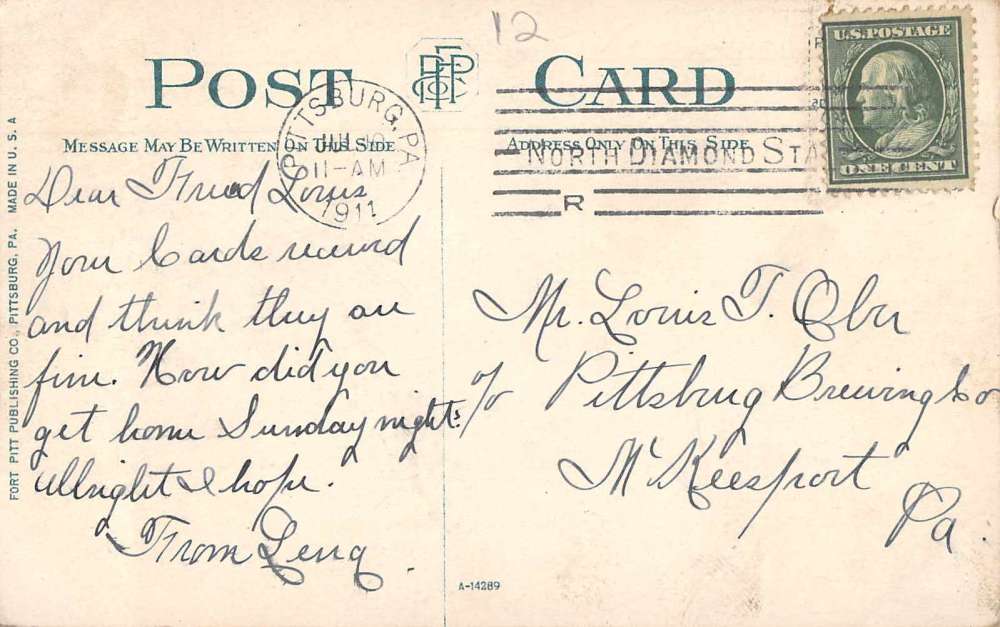 12
POST CARD
U.S. POSTAGE
ONE CENT
MESSAGE MAY BE WRITTEN ON THIS SIDE
ADDRESS ONLY ON THIS SIDE
PITTSBURG, PA.
11-AM
1911
NORTH DIAMOND STA
R
Dear Friend Louis
Your Cards received
and think they are
fine. How did you
get home Sunday night
allright I hope.
From Lena
Mr. Louis T. Ober
c/o Pittsburg Brewing Co
McKeesport
Pa.
FORT PITT PUBLISHING CO., PITTSBURG, PA. MADE IN U.S.A
A-14289